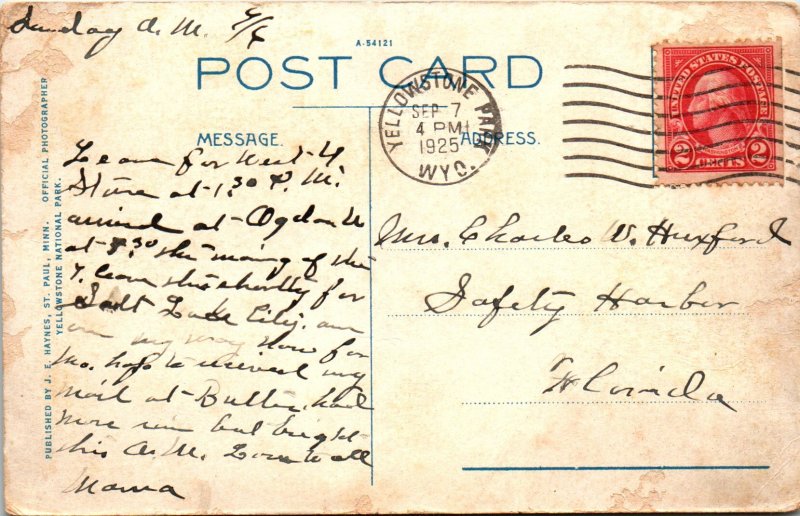 Sunday A.M. 9/6
A-54121
POST CARD
MESSAGE.
ADDRESS.
YELLOWSTONE PARK
SEP 7
4 PM
1925
WYO.
UNITED STATES POSTAGE
2 CENTS 2
Leave for West Y.
Stone at 1:30 P.M.
arrived at Ogden U
at 8:30 the morning of the
7. leave there shortly for
Salt Lake City. am
on my way now for
Mo. hope to received my
mail at Butte. had
more rain but bright
this A.M. Love to all
Mama
Mrs. Charles W. Huxford
Safety Harbor
Florida
PUBLISHED BY J. E. HAYNES, ST. PAUL, MINN. OFFICIAL PHOTOGRAPHER
YELLOWSTONE NATIONAL PARK.